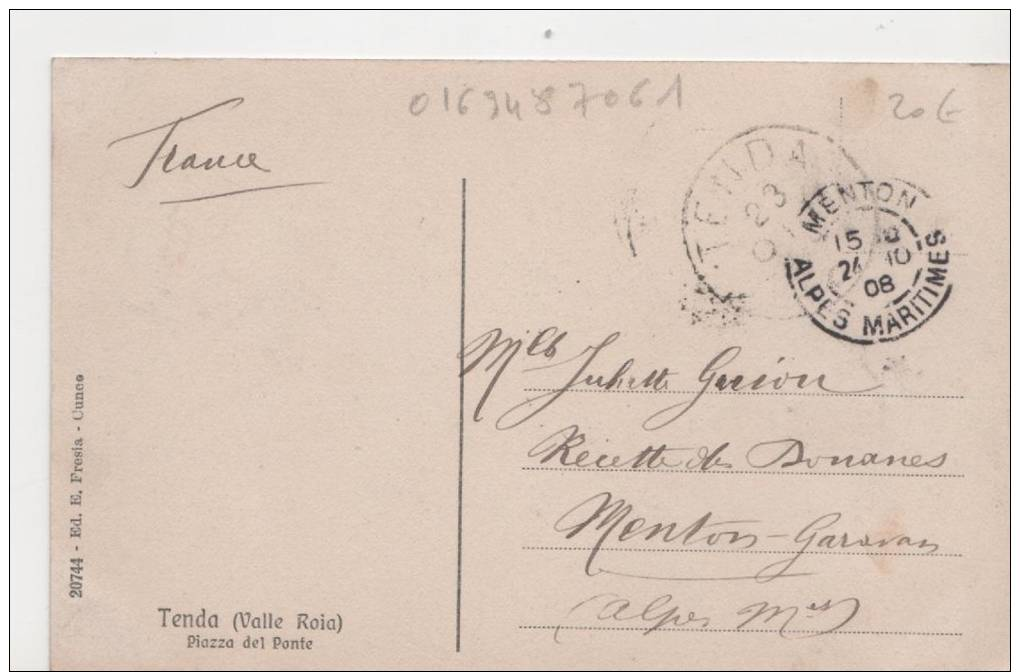 0169487061
20€
France
TENDA
23
MENTON
15
24 10
08
ALPES MARITIMES
Mlle Juliette
Recette des Douanes
Menton-Garavan
(Alpes Mmes)
20744 - Ed. E. Fresia - Cuneo
Tenda (Valle Roia)
Piazza del Ponte